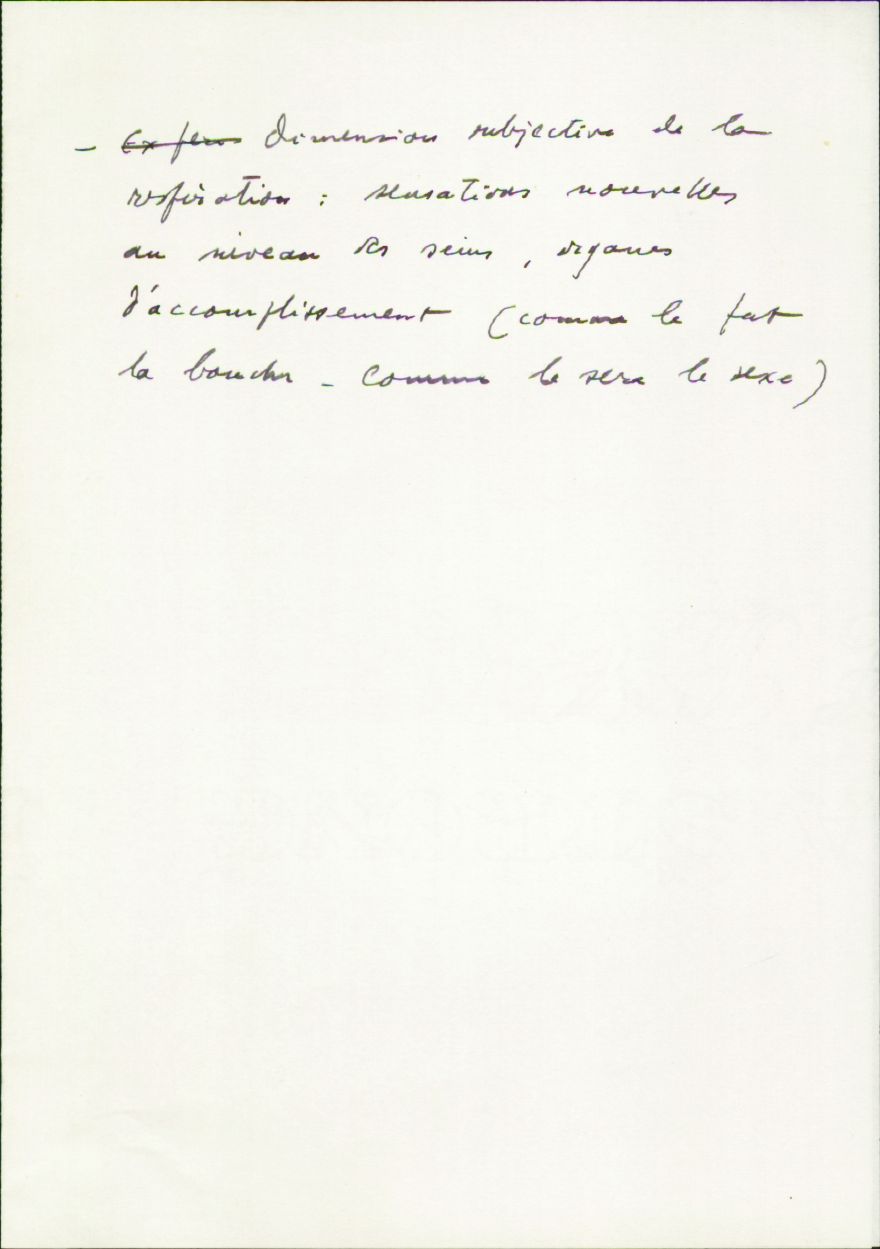 - Dimension subjective de la
respiration : sensations nouvelles
au niveau des seins, organes
d'accomplissement (comme le fut
la bouche - comme le sera le sexe)